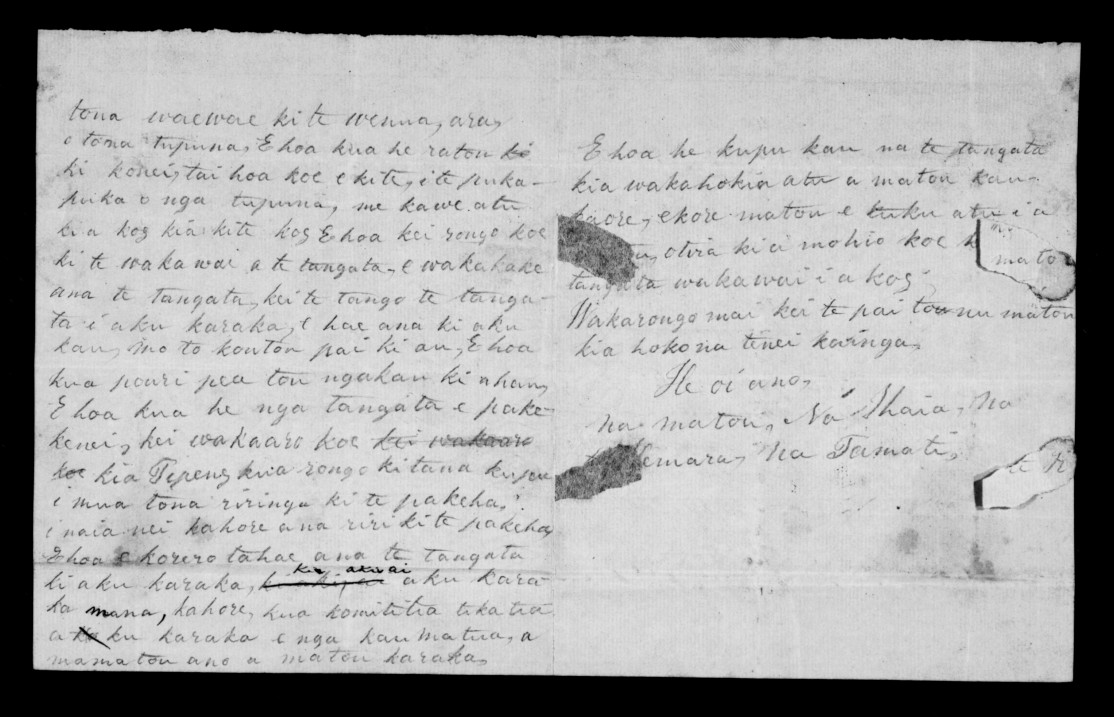 tona waewae ki te wenua, ara,
o tona tupuna, E hoa kua he raton ki
ki konei, tai hoa koe e kite, i te puka-
puka o nga tupuna, me kawe atu
ki a koe kia kite koe E hoa kei rongo koe
ki te wakawai a te tangata, e wakahake
ana te tangata, kei te tango te tanga-
ta i aku karaka, e hae ana ki aku
kau, mo to koutou pai ki au, E hoa
kua pouri pea tou ngakau ki ahau,
E hoa kua he nga tangata e pake-
kenei, kei wakaaro koe kei wakaaro
koe kia Tipene, kua rongo ki tana kupu
i mua tona riringa ki te pakeha,
i naia nei kahore ana riri ki te pakeha,
E hoa e korero tahae ana te tangata
ki aku karaka, kei akuai aku kara-
ka mana, kahore, kua komititia tikatia
a ku karaka e nga kaumatua, a
mamatou ano a matou karaka,
E hoa he kupu kau na te tangata
kia wakahokia atu a matou kau,
kaore, ekore matou e tuku atu i a
otira kia mohio koe matou
tangata wakawai i a koe,
Wakarongo mai kei te pai tonu matou
kia hokona tenei kainga,
He oi ano,
na matou, Na Ihaia, Na
Na Tamati,
te